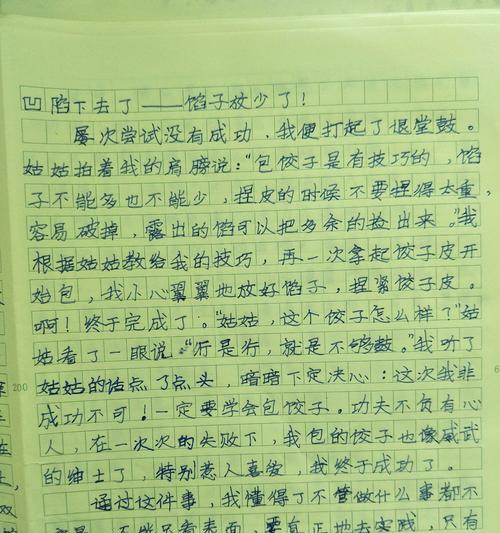 凹陷下去了——馅子放少了！
屡次尝试没有成功，我便打起了退堂鼓。
姑姑拍着我的肩膀说："包饺子是有技巧的，馅
子不能多也不能少，捏皮的时候不要捏得太重，
容易破掉，露出的馅可以把多余的捡出来。"我
根据姑姑教给我的技巧，再一次拿起饺子皮开
始包，我小心翼翼地放好馅子，捏紧饺子皮。
啊！终于完成了。"姑姑，这个饺子怎么样？"姑
姑看了一眼说："行是行，就是不够鼓。"我听了
姑姑的话点了点头，暗暗下定决心：这次我非
200
成功不可！一定要学会包饺子。功夫不负有心
人，在一次次的失败下，我包的饺子也像威武
的绅士了，特别惹人喜爱，我终于成功了。
通过这件事，我懂得了不管做什么事都不
能只看表面，要真正地去实践，只有